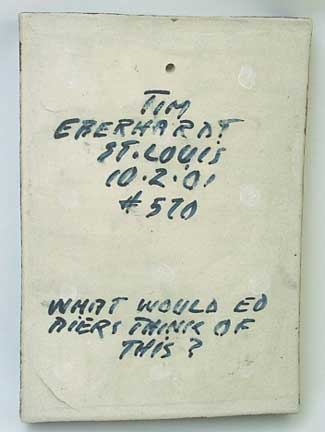 TIM
EBERHARDT
ST. LOUIS
10.2.01
#570
WHAT WOULD ED
PIERS THINK OF
THIS?